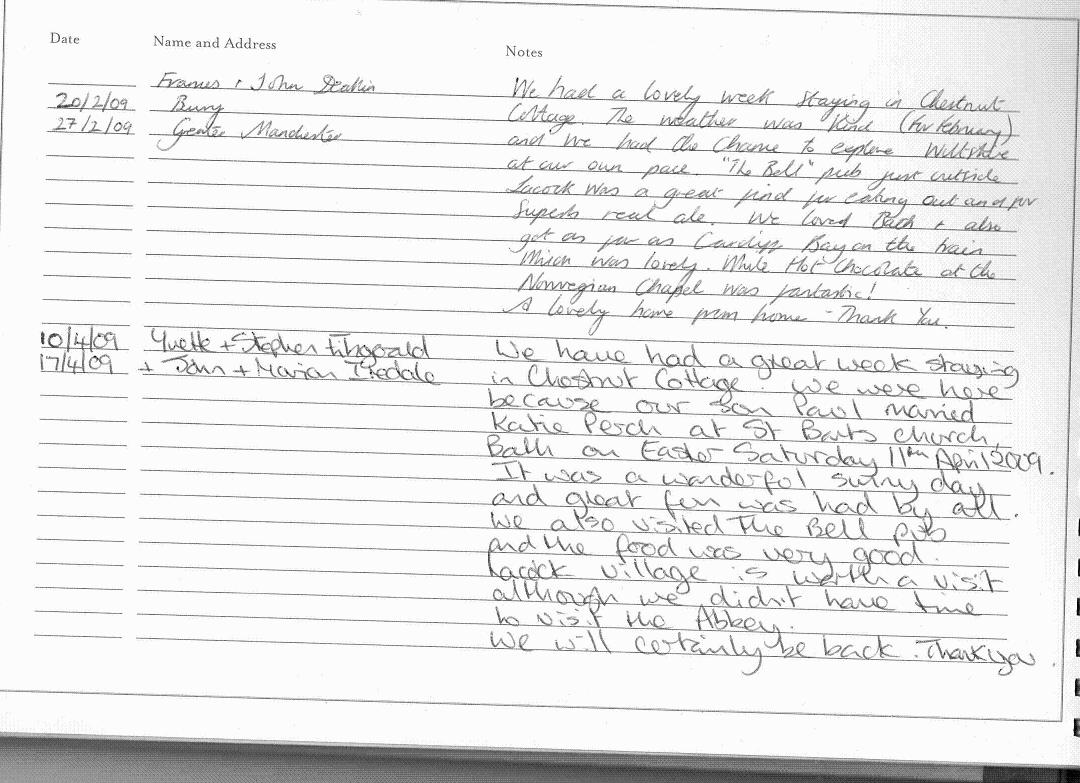 Date Name and Address Notes
Frances + John Deakin We had a lovely week staying in Chestnut
20/2/09 Bury Cottage. The weather was kind (for February)
27/2/09 Greater Manchester and we had the chance to explore Wiltshire
at our own pace. "The Bell" pub just outside
Lacock was a great find for eating out and for
Superb real ale. We loved Bath + also
got as far as Cardiff Bay on the train
which was lovely. White Hot Chocolate at the
Norwegian Chapel was fantastic!
A lovely home from home - Thank You.
10/4/09 Yvette + Stephen Fitzgerald We have had a great week staying
17/4/09 + John + Marian Tisdale in Chestnut Cottage. We were here
because our son Paul married
Katie Perch at St Barts church,
Bath on Easter Saturday 11th April 2009.
It was a wonderful sunny day
and great fun was had by all.
We also visited The Bell pub
and the food was very good.
Lacock village is worth a visit
although we didn't have time
to visit the Abbey.
We will certainly be back. Thank you.